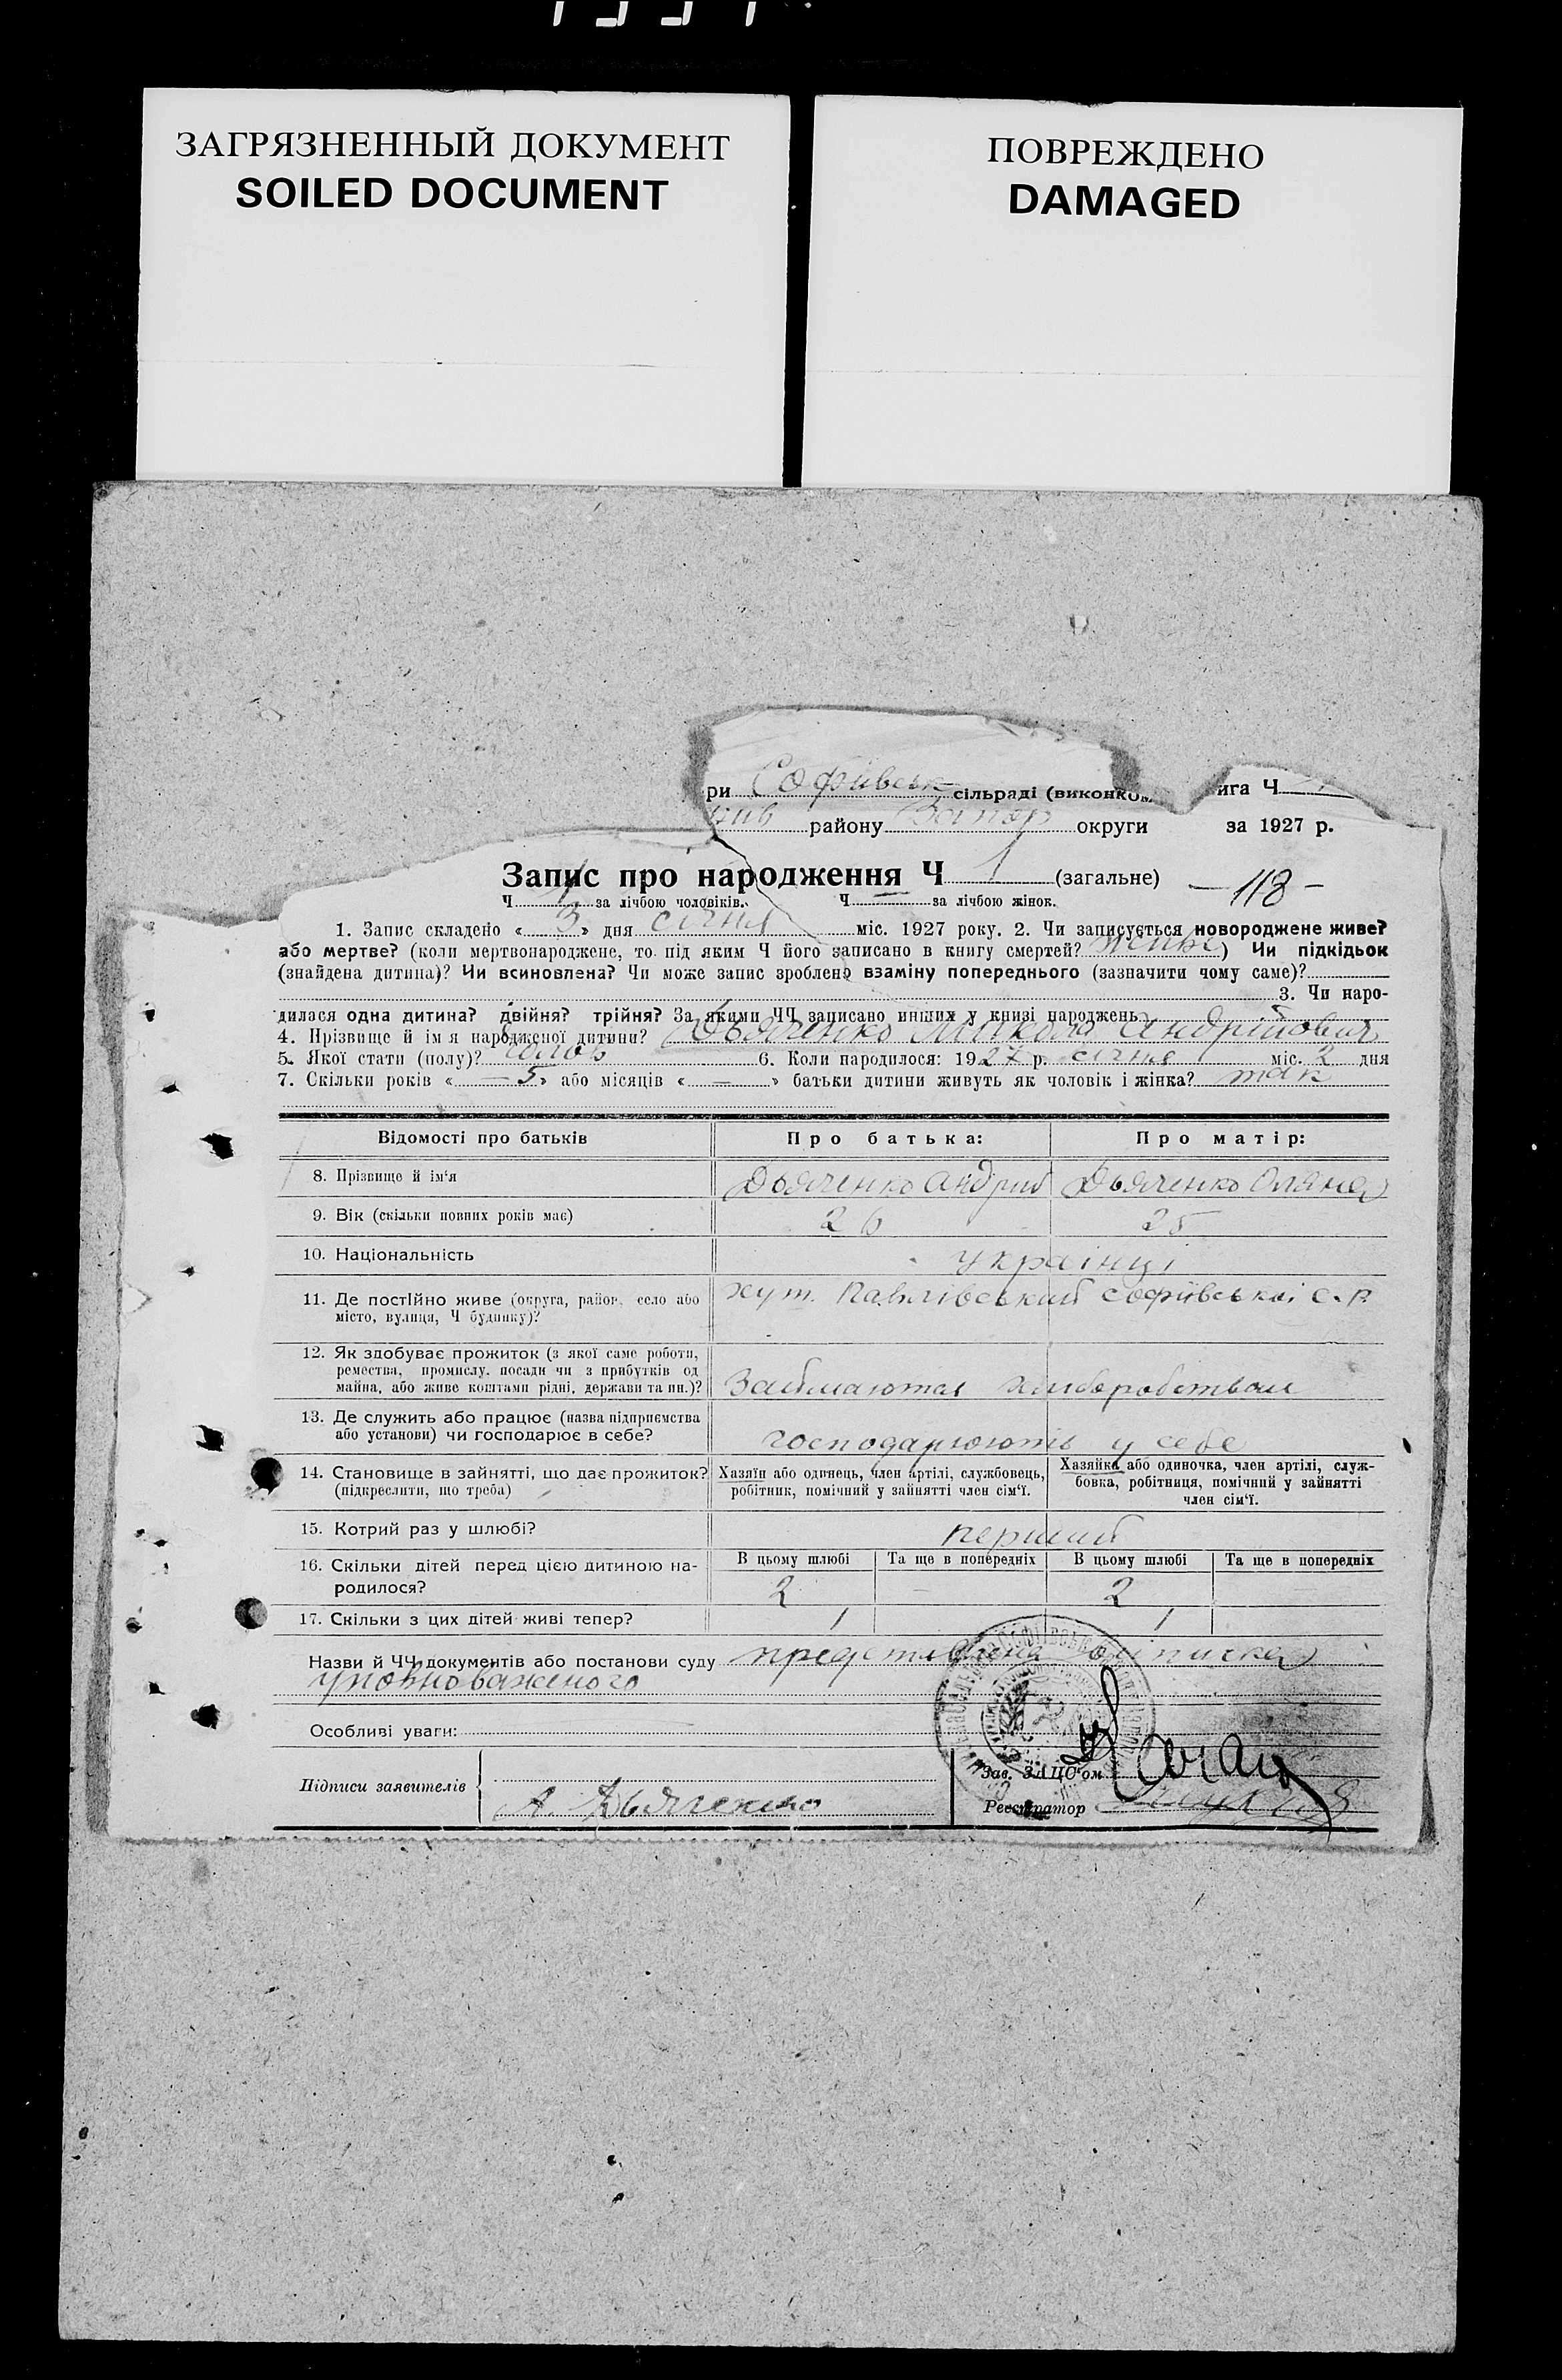 ЗАГРЯЗНЕННЫЙ ДОКУМЕНТ
SOILED DOCUMENT
ПОВРЕЖДЕНО
DAMAGED
ри Софіївськ сільраді (виконком ига Ч
району Запор округи за 1927 р.
Запис про народження Ч 1 (загальне) – 118 –
Ч 1 за лічбою чоловіків. Ч — за лічбою жінок.
1. Запис складено « 3 » дня січня міс. 1927 року. 2. Чи записується новороджене живе?
або мертве? (коли мертвонароджене, то під яким Ч його записано в книгу смертей? живе) Чи підкідьок
(знайдена дитина)? Чи всиновлена? Чи може запис зроблено взаміну попереднього (зазначити чому саме)?
3. Чи наро-
дилася одна дитина? двійня? трійня? За якими ЧЧ записано инших у книзі народжень
4. Прізвище й ім я народженої дитини? Дьяченко Микола Андрійович
5. Якої стати (полу)? чолов 6. Коли народилося: 1927 р. січня міс. 2 дня
7. Скільки років « — 5 » або місяців « — » батьки дитини живуть як чоловік і жінка? так
Відомості про батьків Про батька: Про матір:
8. Прізвище й ім‘я Дьяченко Андрий Дьяченко Оляна
9. Вік (скільки повних років має) 26 25
10. Національність українці
11. Де постійно живе (округа, район, село або
місто, вулиця, Ч будинку)? хут. Павлівський Софіївської с.р.
12. Як здобуває прожиток (з якої саме роботи,
ремества, промислу, посади чи з прибутків од
майна, або живе коштами рідні, держави та ин.)? Займаются хлиборобством
13. Де служить або працює (назва підприємства
або установи) чи господарює в себе? господарюють у себе
14. Становище в зайнятті, що дає прожиток?
(підкреслити, що треба)
Хазяїн або одинець, член артілі, службовець,
робітник, помічний у зайнятті член сім‘ї.
Хазяйка або одиночка, член артілі, служ-
бовка, робітниця, помічний у зайнятті
член сім‘ї.
15. Котрий раз у шлюбі? перший
16. Скільки дітей перед цією дитиною на-
родилося?
В цьому шлюбі Та ще в попередніх В цьому шлюбі Та ще в попередніх
2 — 2
17. Скільки з цих дітей живі тепер? 1 1
Назви й ЧЧ документів або постанови суду представлена
уповноваженого
Особливі уваги:
Підписи заявителів А. Дьяченко
Зав. ЗАЦС‘ом
Реєстратор